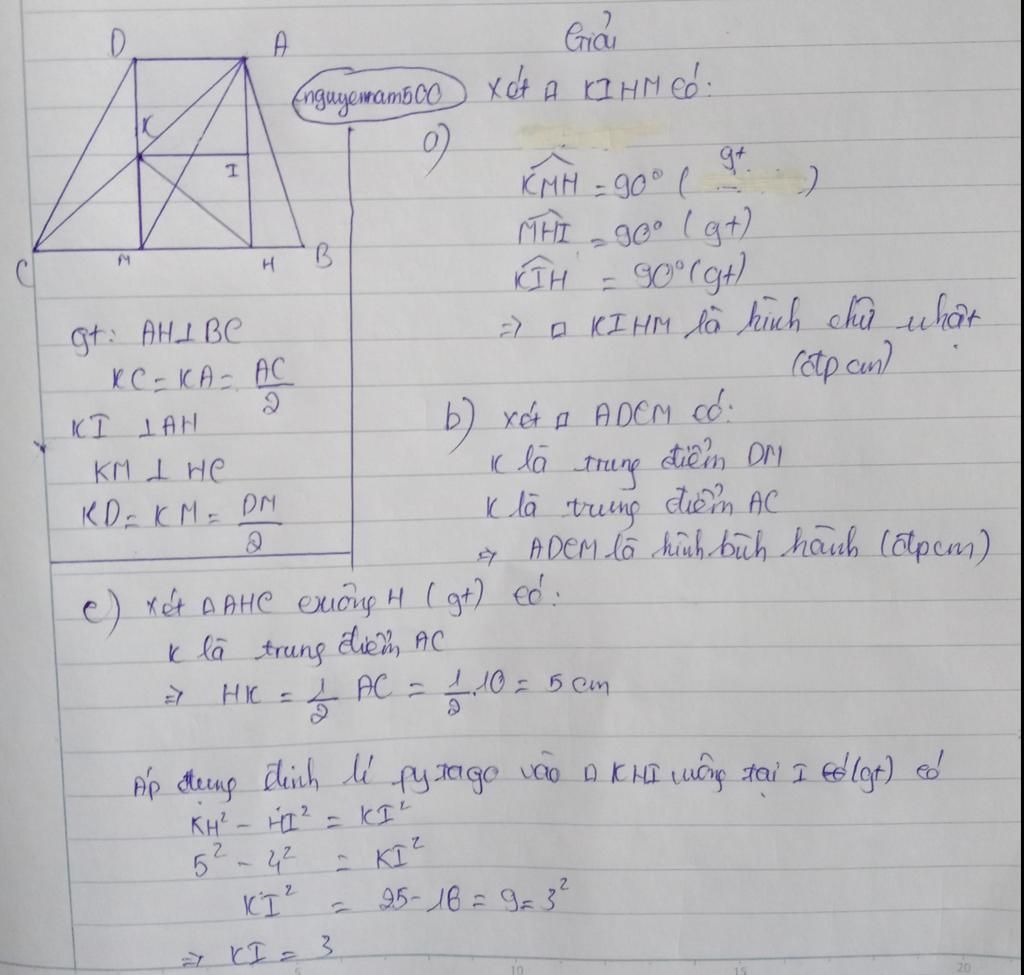 D A
K
I
C M H B
gt: AH⊥BC
KC = KA = AC/2
KI ⊥AH
KM ⊥ HC
KD = KM = DM/2
Giải
nguyenam500
Xét □ KIHM có:
a)
KMH = 90° ( gt )
MHI = 90° (gt)
KIH = 90° (gt)
=> □ KIHM là hình chữ nhật
(đtp cm)
b) Xét □ ADCM có:
K là trung điểm DM
K là trung điểm AC
=> ADCM là hình bình hành (đtpcm)
c) Xét ΔAHC vuông H (gt) có:
K là trung điểm AC
=> HK = 1/2 AC = 1/2 .10 = 5 cm
Áp dụng định lí pytago vào Δ KHI vuông tại I (gt) có
KH² - HI² = KI²
5² - 4² = KI²
KI² = 25 - 16 = 9 = 3²
=> KI = 3